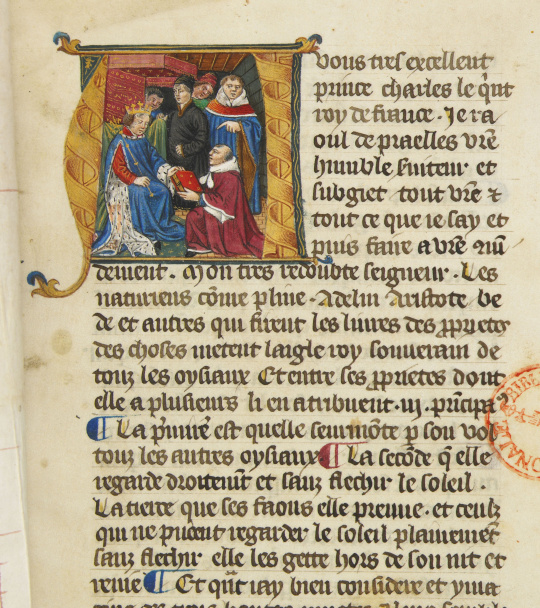 A vous tres excellent
prince charles le qint
roy de france . Je ra
oul de praelles vre
humble s'uiteur et
subgiet tout vre et
tout ce que ie say et
puis faire a vre co
dement . Mon tres redoubte seigneur . Les
naturiens come pline . Adelin Aristote be
de et autres qui firent les liures des pprietes
des choses metent laigle roy souuerain de
touz les oysiaux Et entre ses pprietes dont
elle a plusieurs li en atribuent .iij. principa
¶ La p'miere est quelle seurmote p son vol
touz les autres oysiaux ¶ La secode q elle
regarde droitemt et sanz flechir le soleil .
La tierce que ses faons elle preuue . et ceulz
qui ne pueent regarder le soleil plainemet
sanz flechir elle les gette hors de son nit et
renie ¶ Et qnt iay bien considere et yma